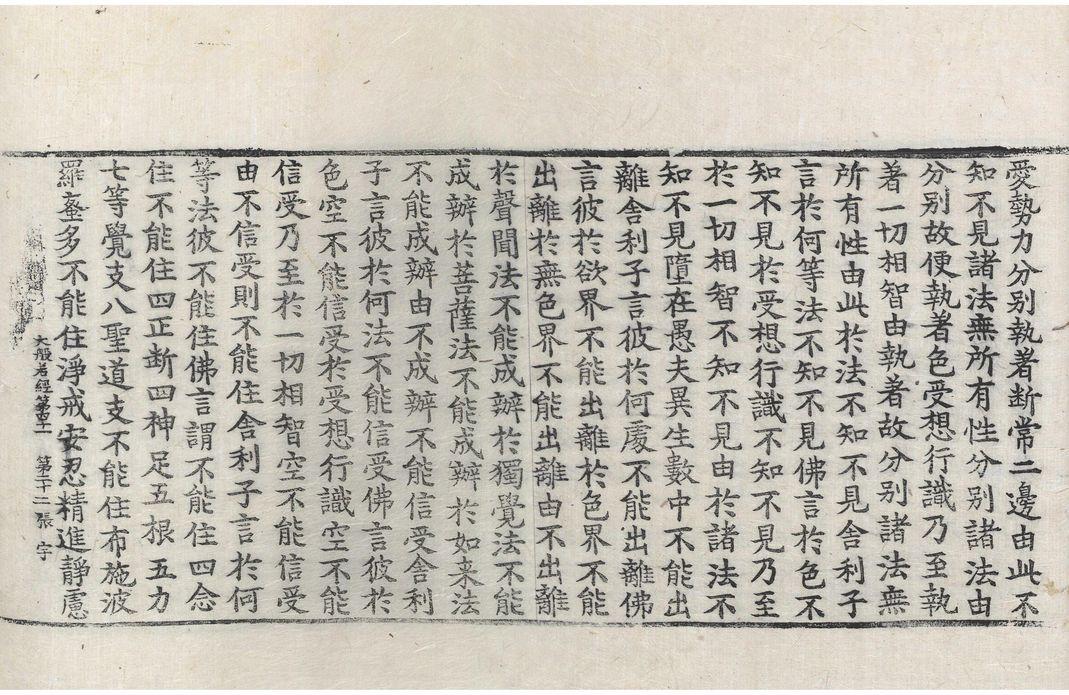 愛勢力分別執著断常二邊由此不
知不見諸法無所有性分別諸法由
分別故便執著色受想行識乃至執
著一切相智由執著故分別諸法無
所有性由此於法不知不見舍利子
言於何等法不知不見佛言於色不
知不見於受想行識不知不見乃至
於一切相智不知不見由於諸法不
知不見墮在愚夫異生數中不能出
離舍利子言彼於何處不能出離佛
言彼於欲界不能出離於色界不能
出離於無色界不能出離由不出離
於聲聞法不能成辨於獨覺法不能
成辨於菩薩法不能成辨於如来法
不能成辨由不成辨不能信受舍利
子言彼於何法不能信受佛言彼於
色空不能信受於受想行識空不能
信受乃至於一切相智空不能信受
由不信受則不能住舍利子言於何
等法彼不能住佛言謂不能住四念
住不能住四正断四神足五根五力
七等覺支八聖道支不能住布施波
羅蜜多不能住淨戒安忍精進靜慮
大般若經第 第二十二張 字